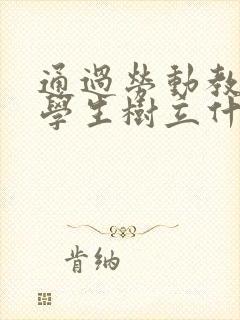 通過勞動教
學生樹立什
肯納